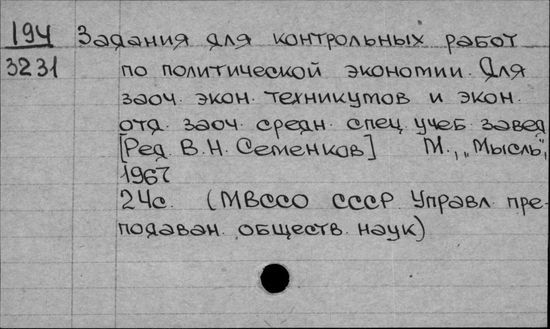 194 Задания для контрольных работ
3231 по политической экономии. Для
заоч. экон. техникумов и экон.
отд. заоч. средн. спец. учеб. завед.
[Ред. В.Н. Семенков] М., „Мысль",
1967
24с. (МВССО СССР Управл. пре-
подаван. обществ. наук)